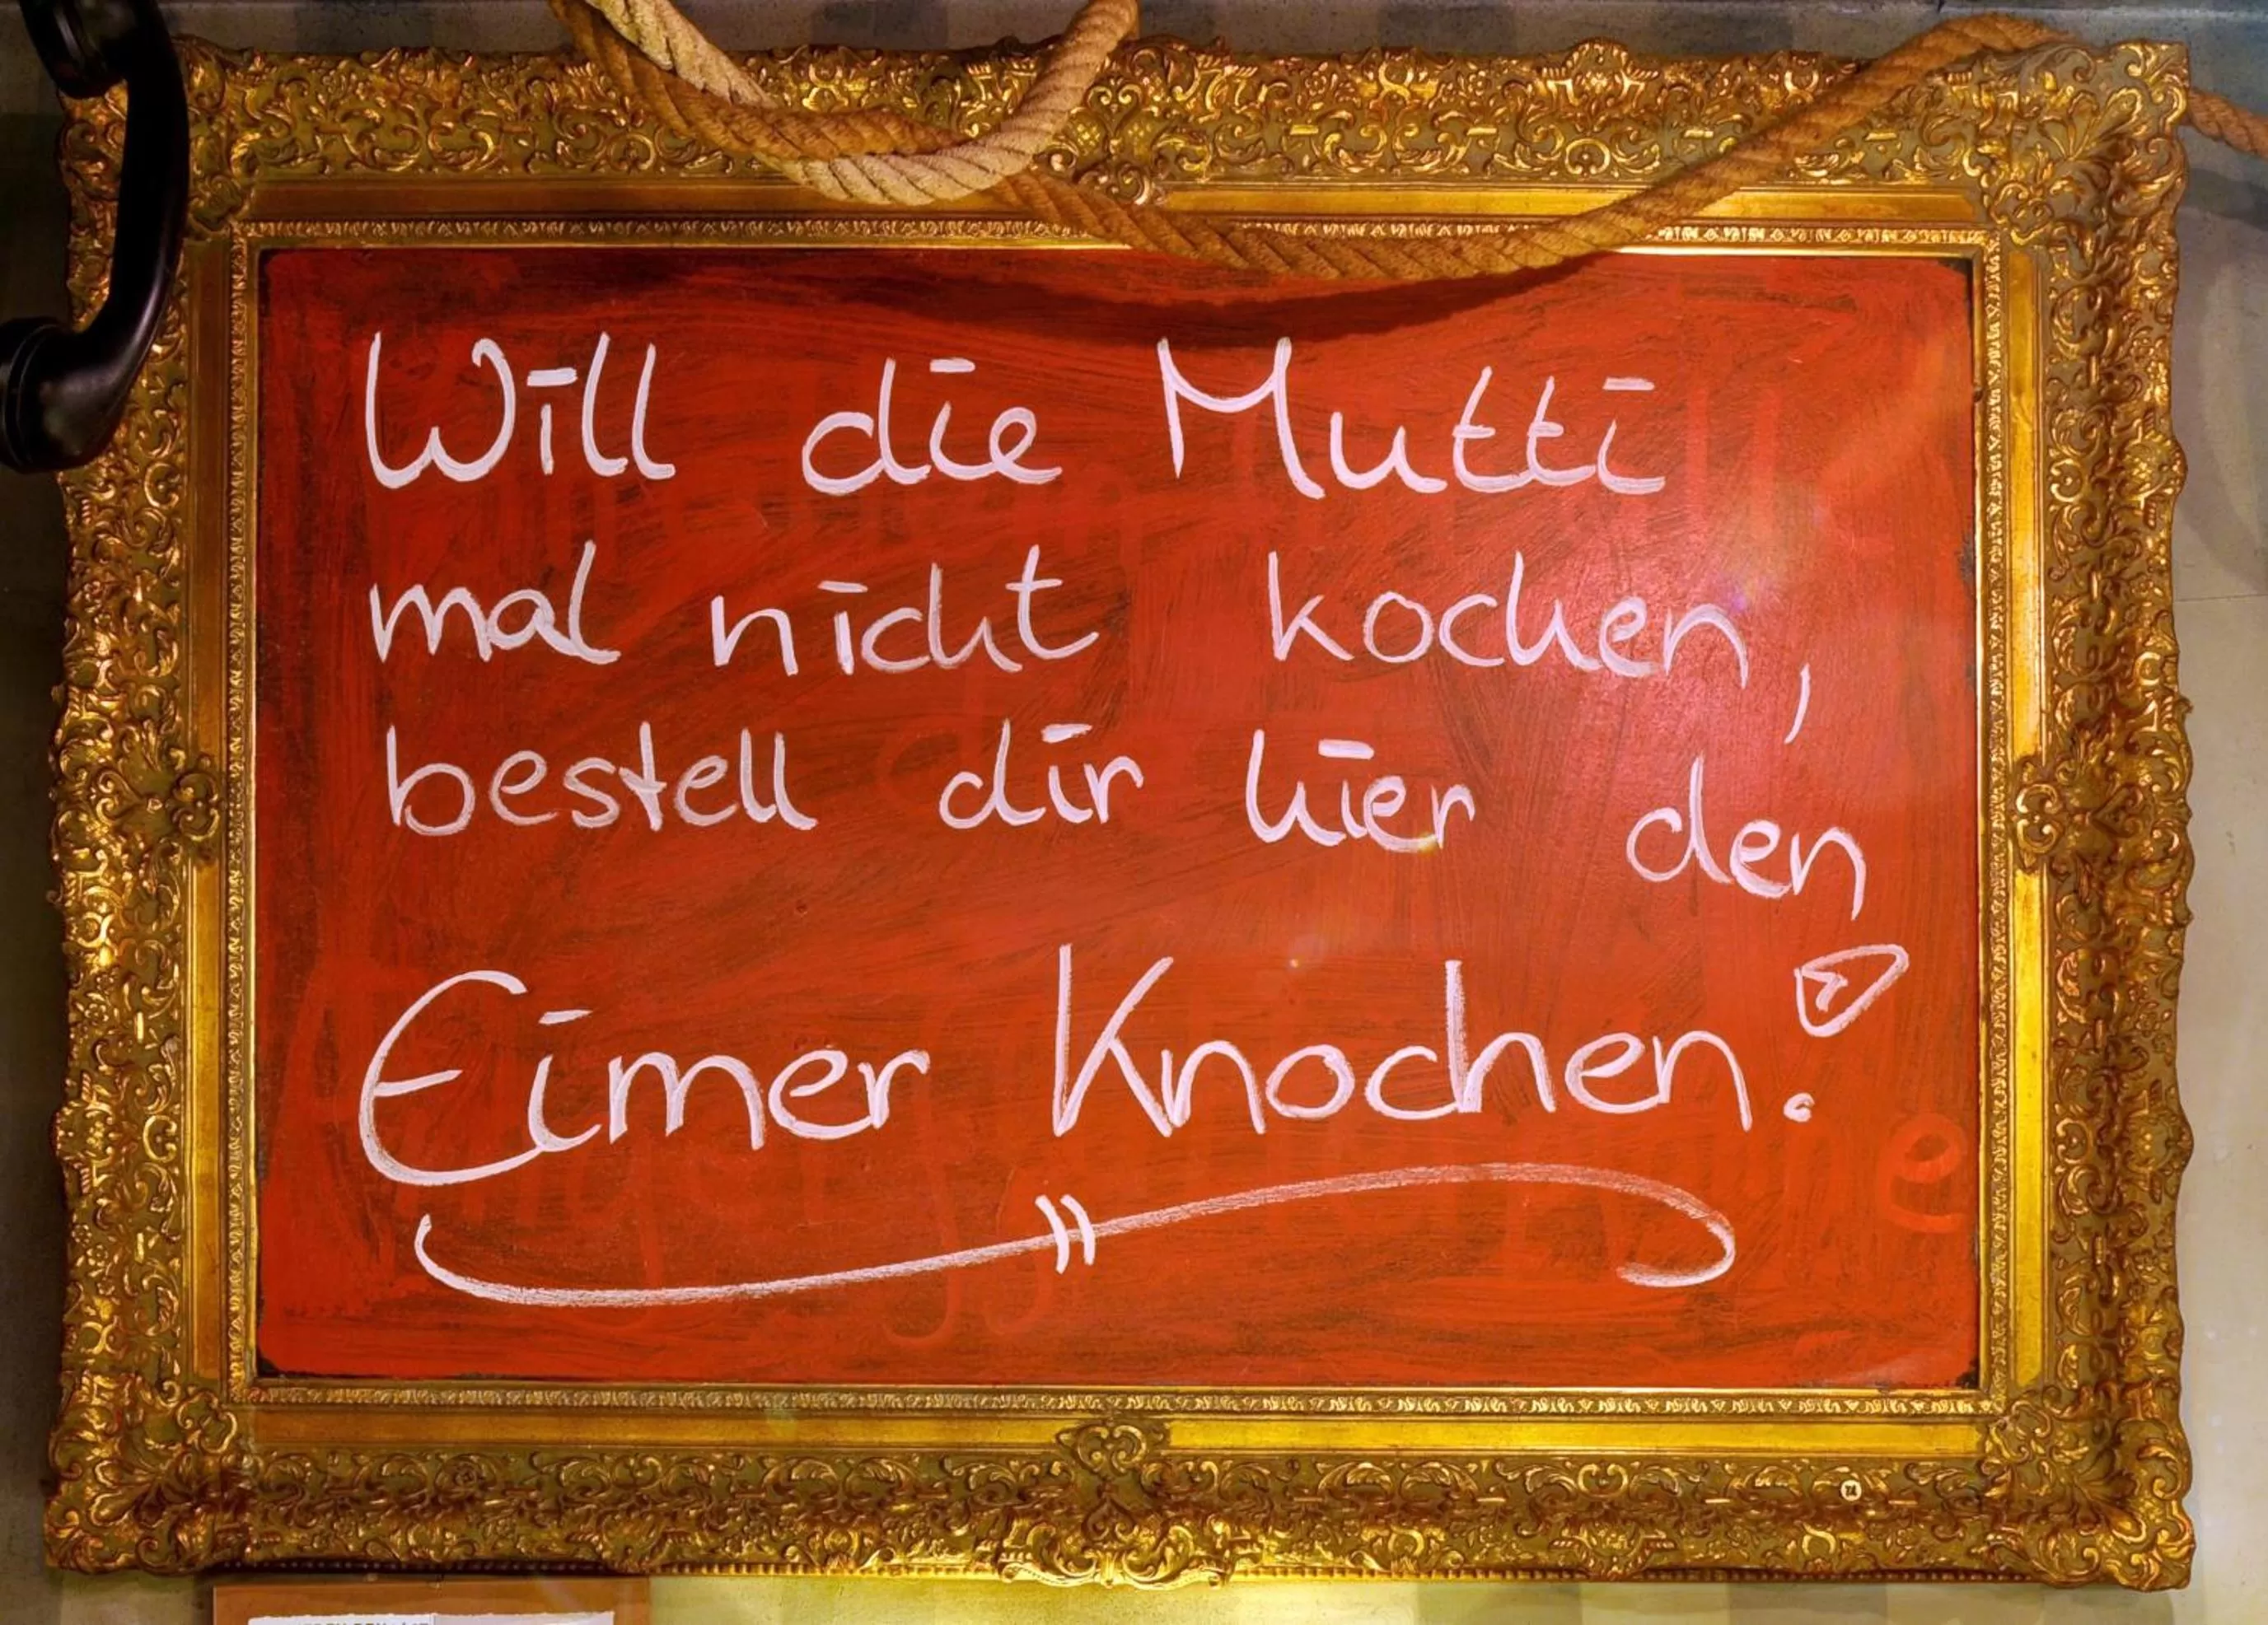 Will die Mutti
mal nicht kochen,
bestell dir hier den
Eimer Knochen.